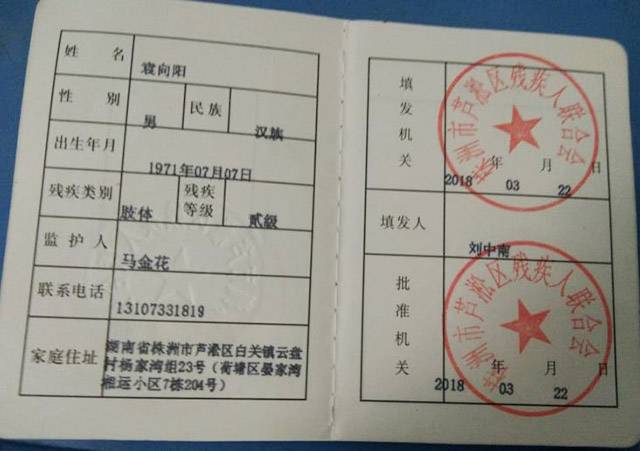 姓 名 袁向阳
性 别 男 民族 汉族
出生年月 1971年07月07日
残疾类别 肢体 残疾等级 贰级
监护人 马金花
联系电话 13107331819
家庭住址 湖南省株洲市芦淞区白关镇云盘
村杨家湾组23号（荷塘区晏家湾
湘运小区7栋204号）
填发机关
株洲市芦淞区残疾人联合会
年 月 日
2018 03 22
填发人 刘中南
批准机关
株洲市芦淞区残疾人联合会
年 月 日
2018 03 22